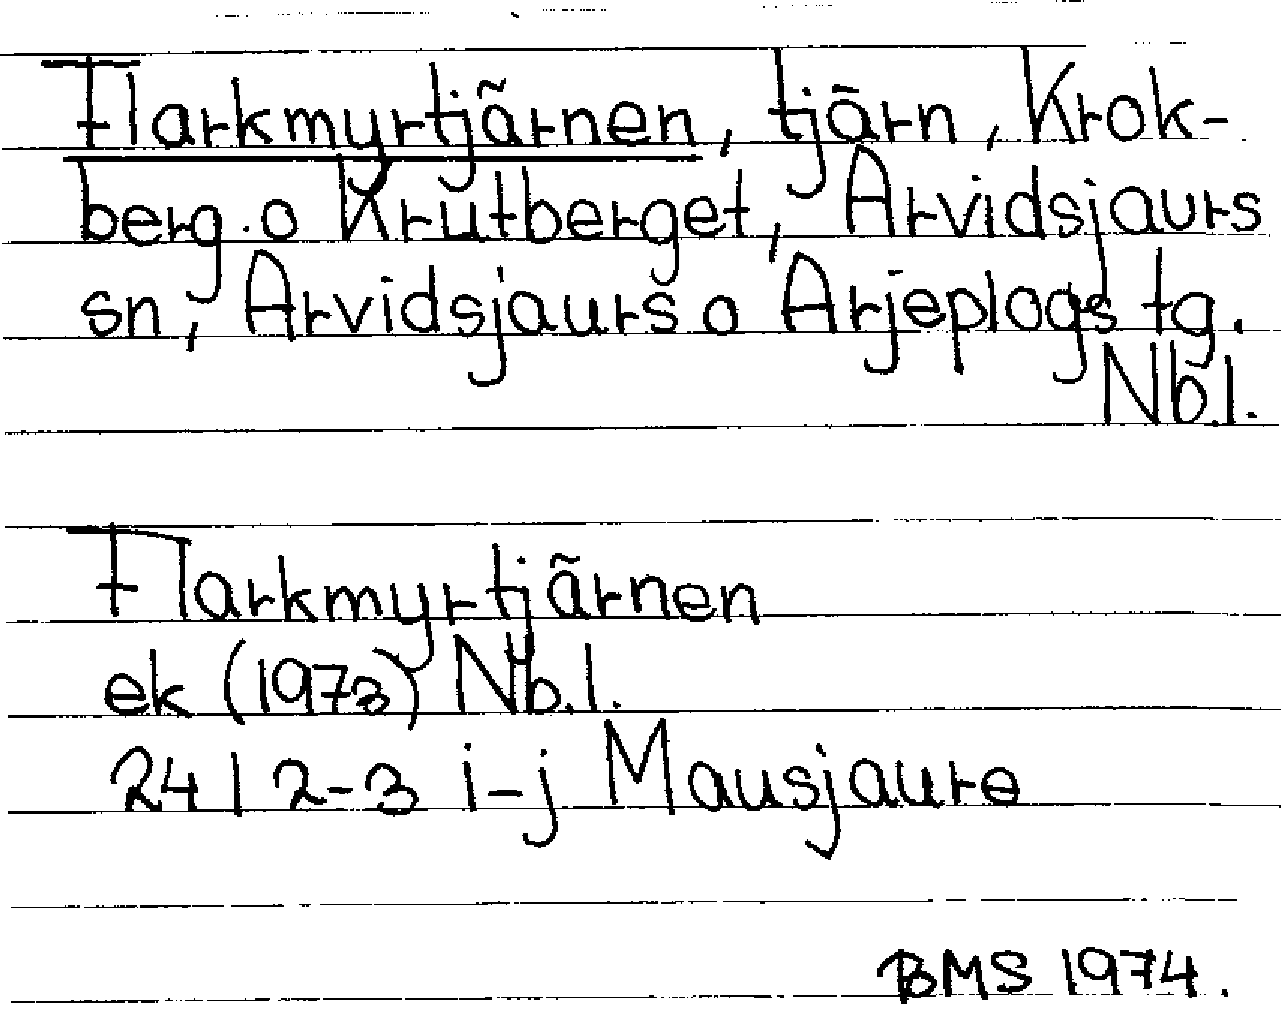 Flarkmyrtjärnen, tjärn, Krok-
berg. o Krutberget, Arvidsjaurs
sn, Arvidsjaurs o Arjeplogs tg.
Nb.l.
Flarkmyrtjärnen
ek (1973) Nb.l.
24 I 2-3 i-j Mausjaure
BMS 1974.